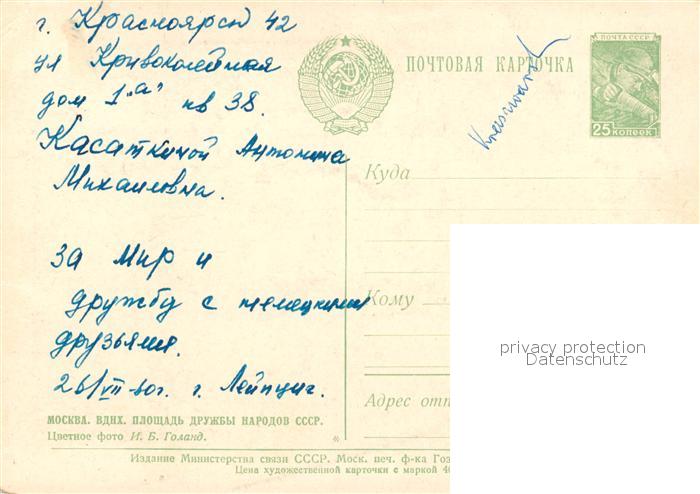 г. Красноярск 42
ул Кривоколейная
дом 1 "а" кв 38.
Касаткиной Антонина
Михаиловна.
За Мир и
дружбу с немецкими
друзьями.
26/VII-60г. г. Лейпциг.
МОСКВА. ВДНХ. ПЛОЩАДЬ ДРУЖБЫ НАРОДОВ СССР.
Цветное фото И. Б. Голанд.
ПОЧТОВАЯ КАРТОЧКА
ПОЧТА СССР
25 КОПЕЕК
Куда
Кому
Адрес отп
privacy protection
Datenschutz
Издание Министерства связи СССР. Моск. печ. ф-ка Гоз
Цена художественной карточки с маркой 40